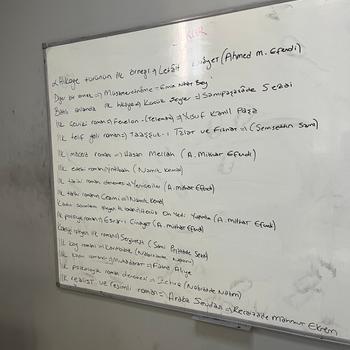 İLK
Hikaye türünün ilk örneği → Letaif (Ahmed M. Efendi)
Diğer bir örnek → Müsameretname → Emin Nihat Bey
Batılı anlamda ilk hikaye → Küçük Şeyler → Samipaşazade Sezai
İlk çeviri roman → Fenelon - (Telemak) → Yusuf Kamil Paşa
İlk telif yerli roman → Taaşşuk-ı Talat ve Fitnat → (Şemsettin Sami)
İlk macera romanı → Hasan Mellah (A. Mithat Efendi)
İlk edebi roman → İntibah (Namık Kemal)
İlk tarihi roman denemesi → Yeniçeriler (A. Mithat Efendi)
İlk tarihi roman → Cezmi → Namık Kemal
On Yedi Yaşında (A. Mithat Efendi)
İlk polisiye roman → Esrar-ı Cinayet (A. mithat Efendi)
ilk roman → Sergüzeşt (Sami Paşazade Sezai)
İlk köy romanı → Karabibik (Nabizade Nazım)
İlk kadın → Muhadarat → Fatma Aliye
İlk psikolojik roman denemesi → Zehra (Nabizade Nazım)
İlk realist ve resimli roman → Araba Sevdası → Recaizade Mahmut Ekrem